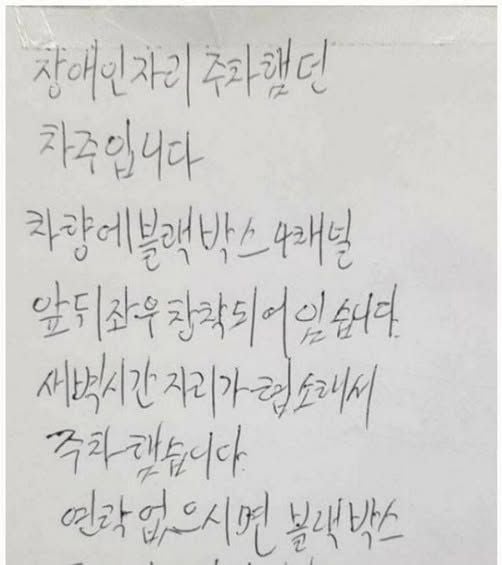 장애인자리 주차햄던
차주입니다
차량에블랙박스4채널
앞뒤좌우장착되어있습니다.
새벽시간 자리가 협소해서
주차했습니다.
연락없으시면 블랙박스